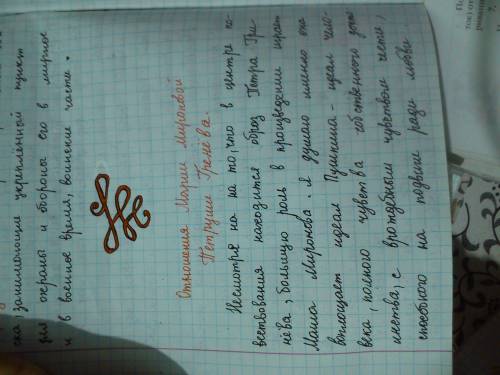 ска, занимающих укрепленный пункт
для охраны и обороны его в мирное
и в военное время, воинские части.
Отношения Марии Мироновой
Петруши Гренева.
Несмотря на на то, что в центре по-
вествования находится образ Петра Гри-
нёва, большую роль в произведении играет
Маша Миронова. Я думаю именно она
воплощает идеал Пушкина - идеал чело-
века, полного чувства собственного дост
инства, с врождённым чувством чести,
способного на подвиги ради любви